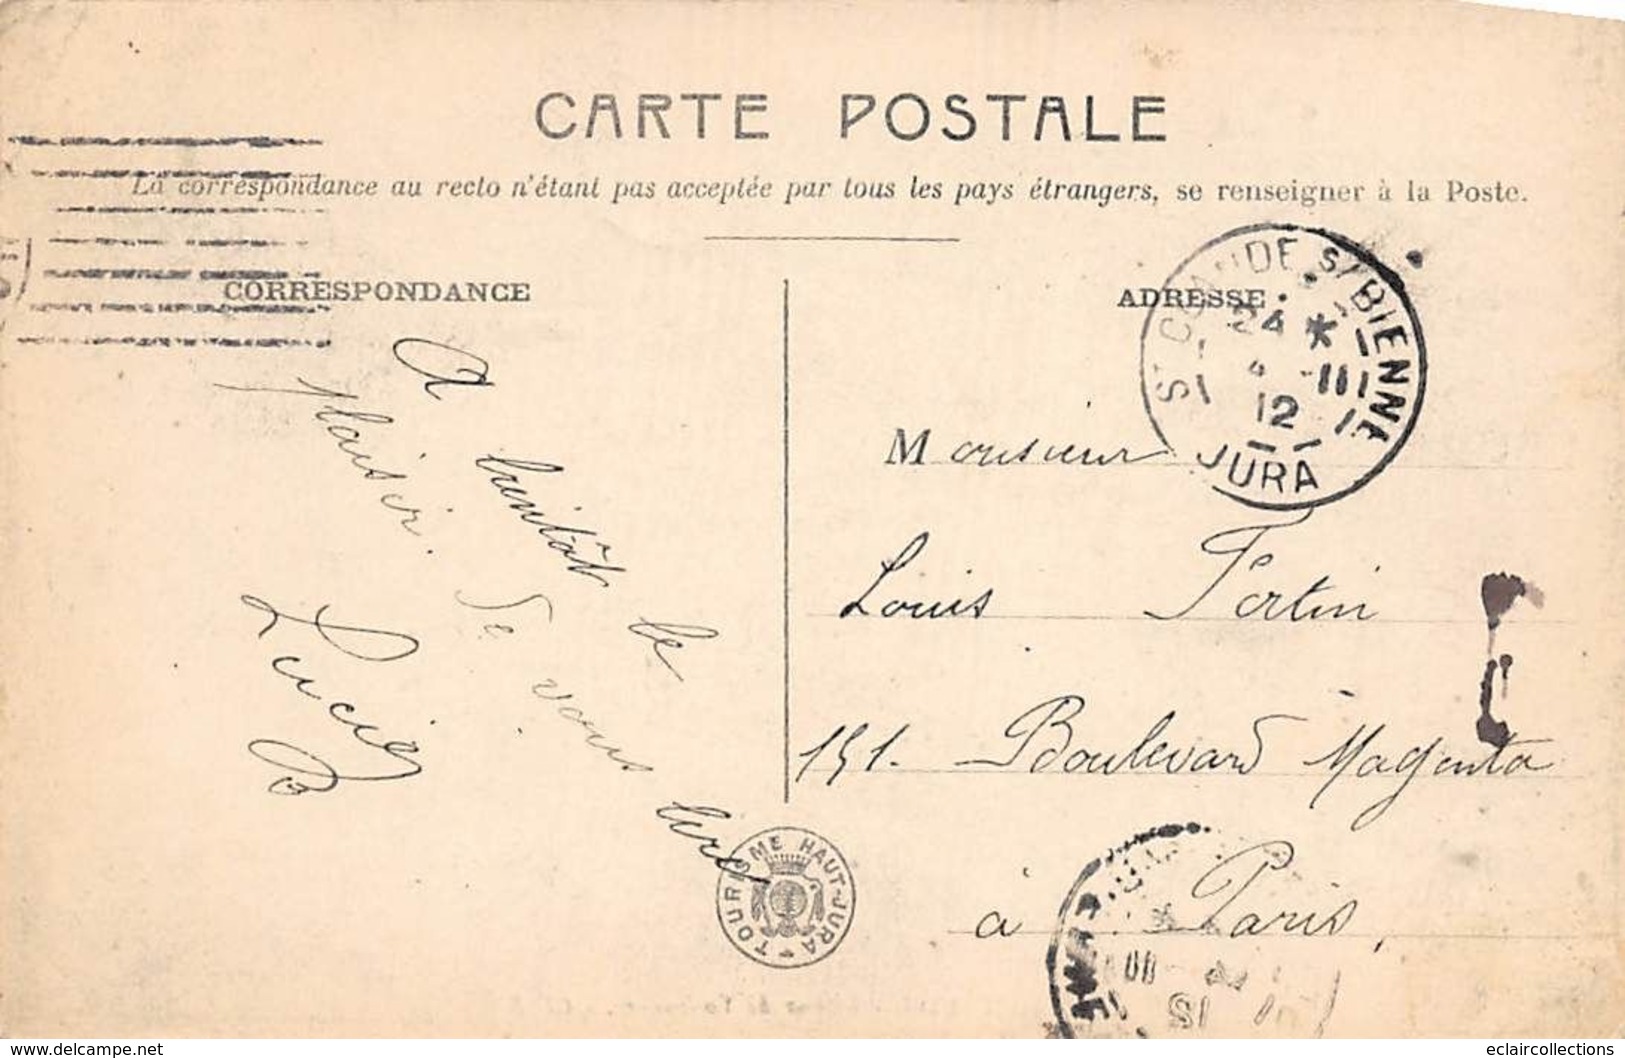 CARTE POSTALE
La correspondance au recto n'étant pas acceptée par tous les pays étrangers, se renseigner à la Poste.
CORRESPONDANCE
A bientôt le
plaisir. De vous lire
Lucien
B
TOURISME HAUT-JURA
ADRESSE
ST CLAUDE S/BIENNE
24 * III
12
JURA
Monsieur
Louis Fortin
151. Boulevard Magenta
à Paris,
delcampe.net
eclaircollections